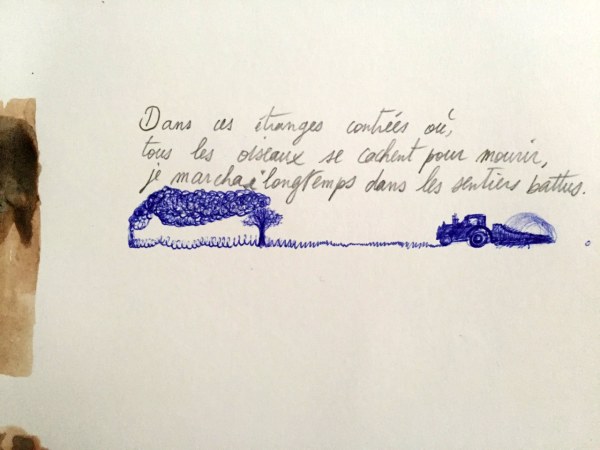 Dans ces étranges contrées où,
tous les oiseaux se cachent pour mourir,
je marchai longtemps dans les sentiers battus.